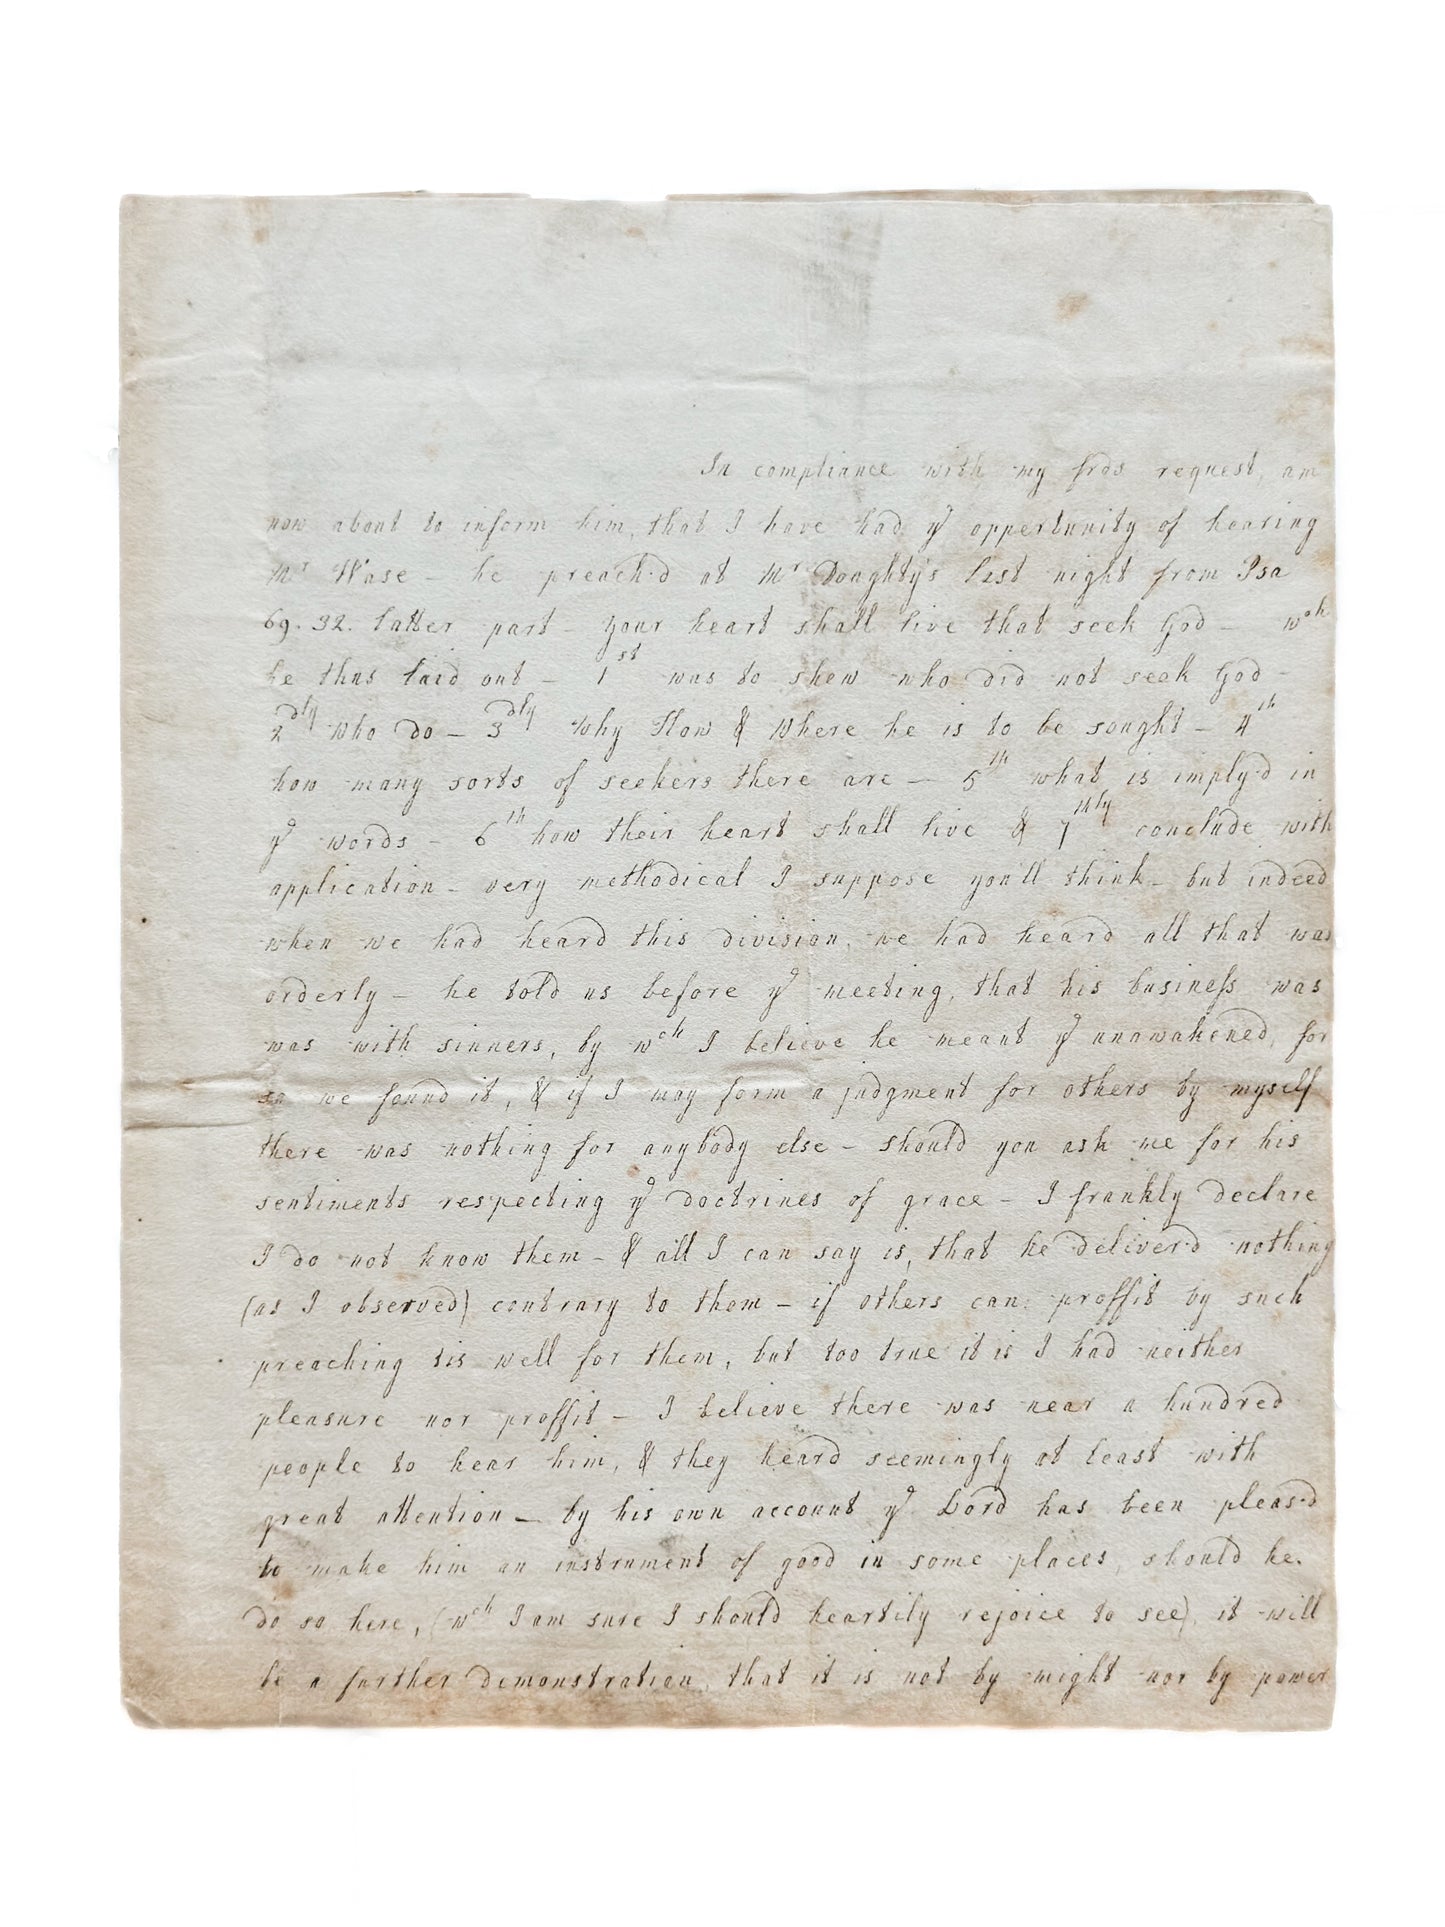 In compliance with my frds request, am
now about to inform him, that I have had yͤ opportunity of hearing
Mʳ Wase – he preach'd at Mʳ Doughty's last night from Psa
69. 32. latter part – your heart shall live that seek God – wᶜʰ
he thus laid out – 1ˢᵗ was to shew who did not seek God –
2ᵈˡʸ who do – 3ᵈˡʸ Why How & Where he is to be sought – 4ᵗʰ
how many sorts of seekers there are – 5ᵗʰ what is imply'd in
yͤ words – 6ᵗʰ how their heart shall live & 7ᵗʰˡʸ conclude with
application – very methodical I suppose you'll think – but indeed
when we had heard this division, we had heard all that was
orderly – he told us before yͤ meeting, that his business was
was with sinners, by wᶜʰ I believe he meant yͤ unawakened, for
so we found it, & if I may form a judgment for others by myself
there was nothing for anybody else – should you ask me for his
sentiments respecting yͤ doctrines of grace – I frankly declare
I do not know them – & all I can say is, that he deliver'd nothing
(as I observed) contrary to them – if others can proffit by such
preaching tis well for them, but too true it is I had neither
pleasure nor proffit – I believe there was near a hundred
people to hear him, & they heard seemingly at least with
great attention – by his own account yͤ Lord has been pleas'd
to make him an instrument of good in some places, should he
do so here, (wᶜʰ I am sure I should heartily rejoice to see), it will
be a farther demonstration that it is not by might nor by power